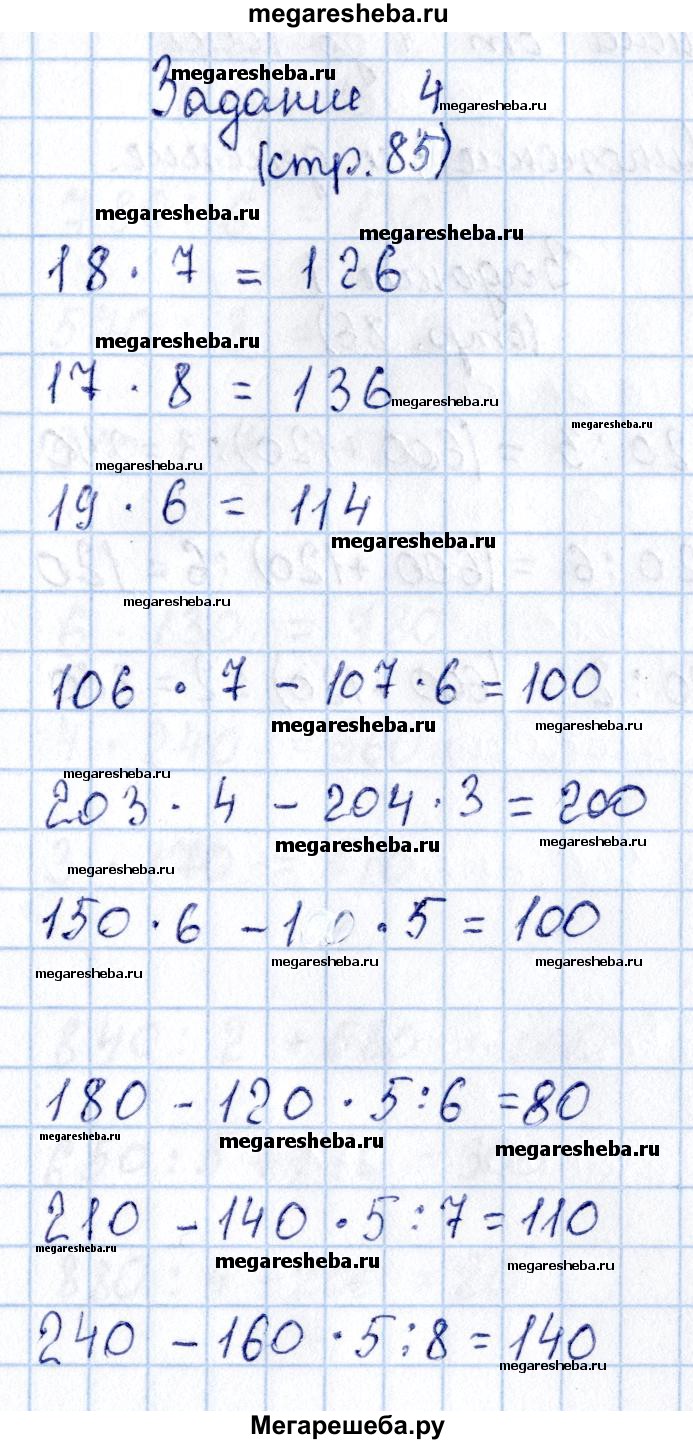 megaresheba.ru
megaresheba.ru
Задание 4
megaresheba.ru
(стр. 85)
megaresheba.ru
megaresheba.ru
18 · 7 = 126
megaresheba.ru
17 · 8 = 136
megaresheba.ru
megaresheba.ru
megaresheba.ru
19 · 6 = 114
megaresheba.ru
megaresheba.ru
106 · 7 - 107 · 6 = 100
megaresheba.ru
megaresheba.ru
megaresheba.ru
203 · 4 - 204 · 3 = 200
megaresheba.ru
megaresheba.ru
megaresheba.ru
150 · 6 - · 5 = 100
megaresheba.ru
megaresheba.ru
megaresheba.ru
180 - 120 · 5 : 6 = 80
megaresheba.ru
megaresheba.ru
megaresheba.ru
210 - 140 · 5 : 7 = 110
megaresheba.ru
megaresheba.ru
megaresheba.ru
240 - 160 · 5 : 8 = 140
megaresheba.ru
Мегарешеба.ру